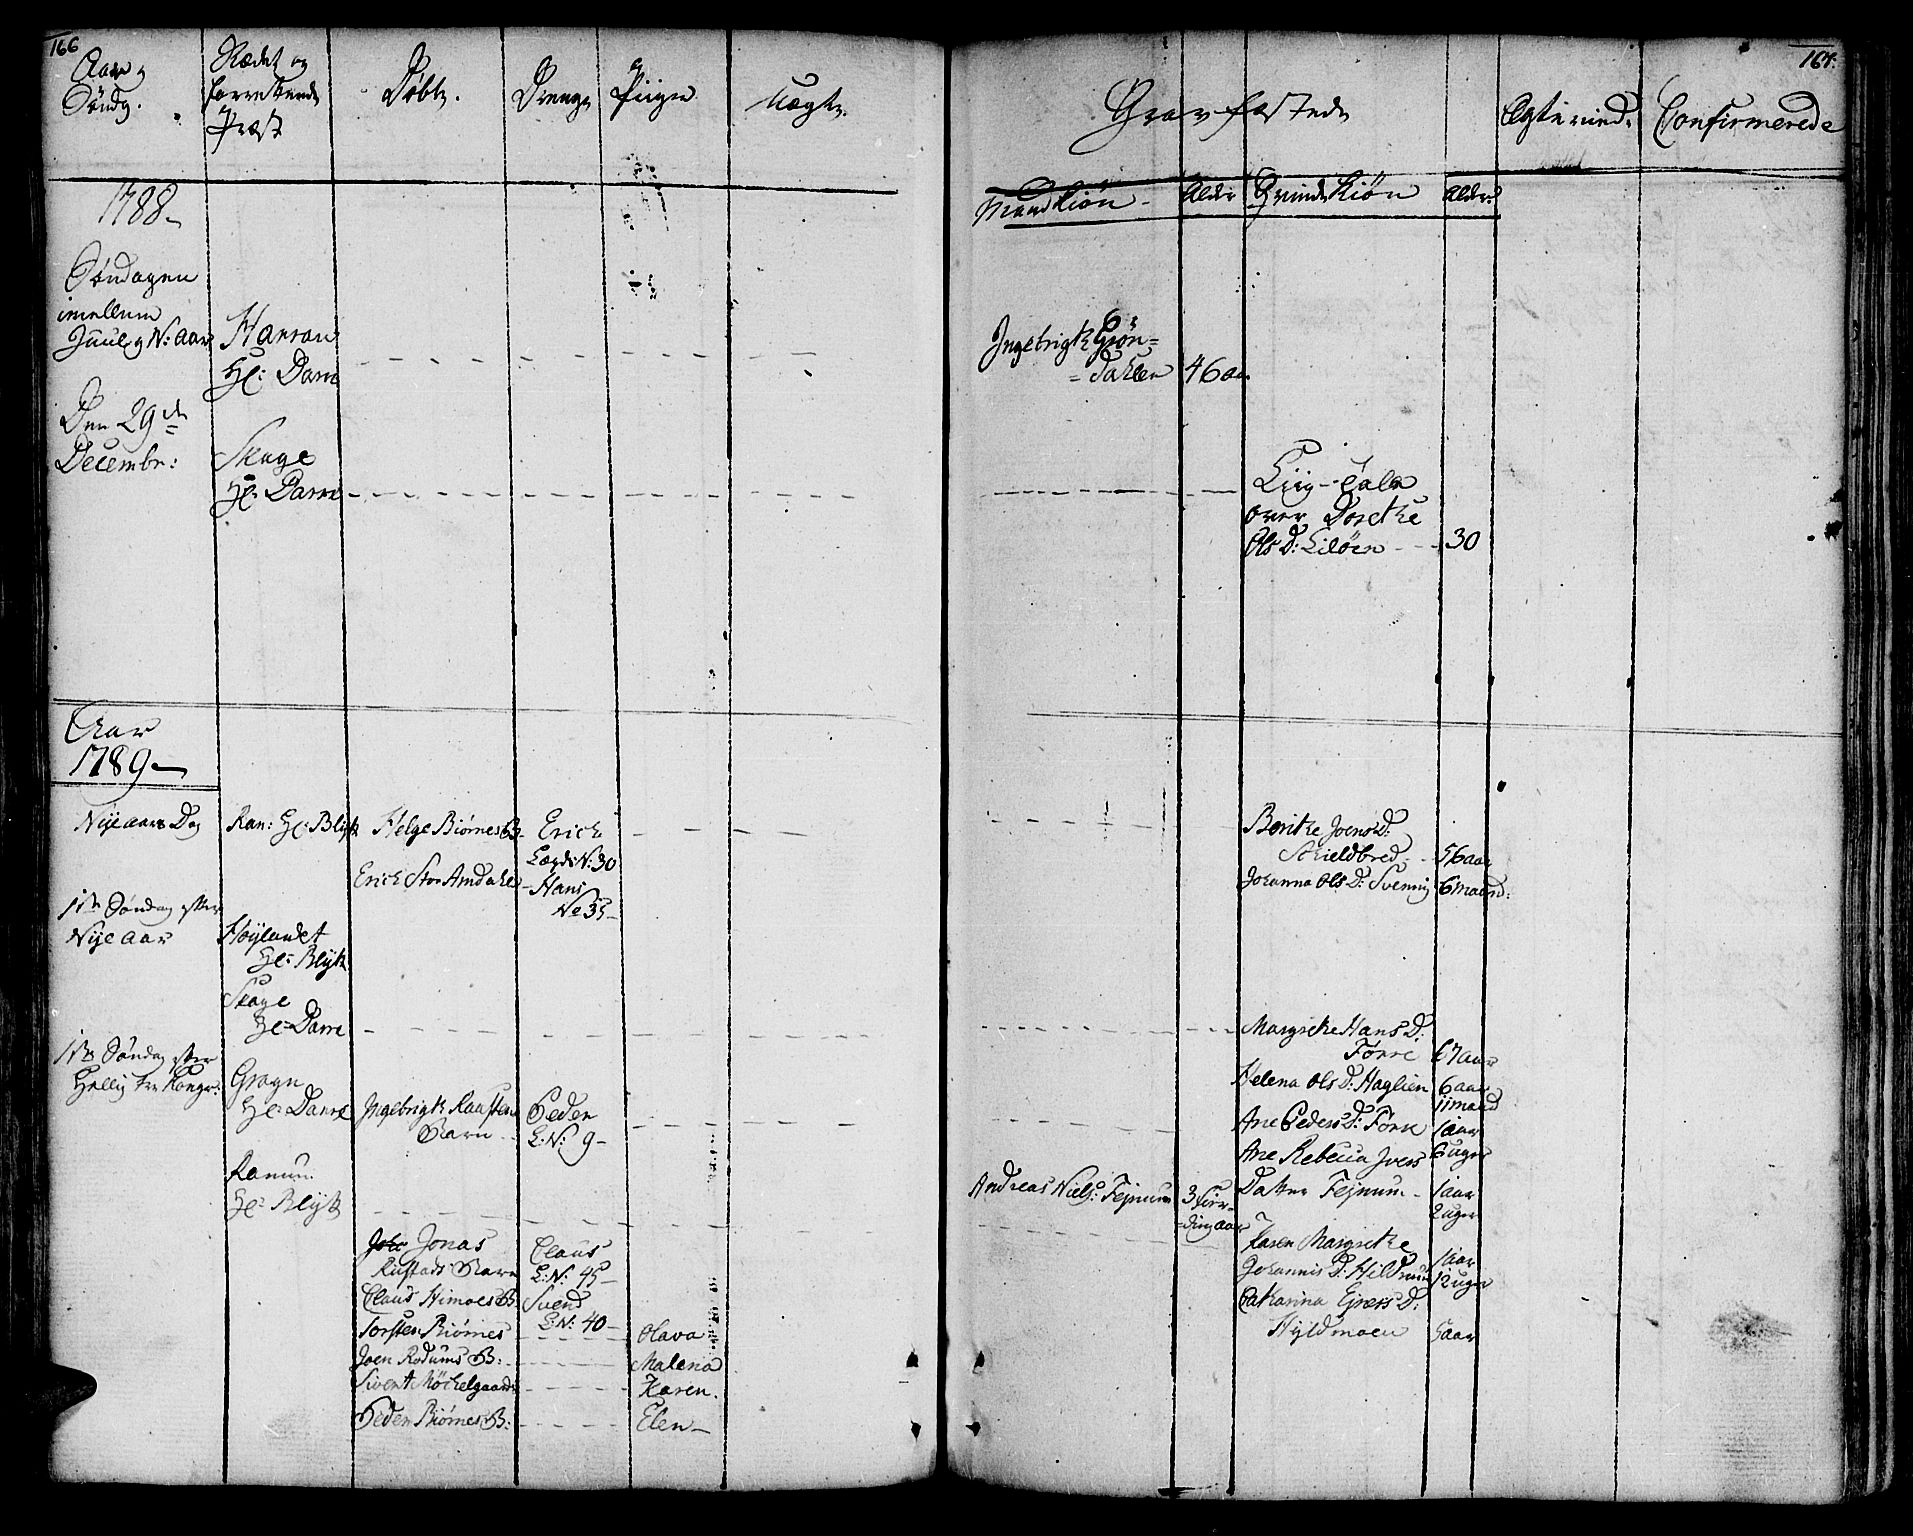 166
Aar og
Søndg.
Stædet og
forrettende
Præst
Døbte.
Drenge
og
Piiger
Uægte.
1788
Søndagen
imellum
Juul og N: Aar
Harran
Hl: Darre
Den 29de
Decembr:
Skage
Hl: Darre
Aar
1789
Nÿe aars Dag
Ran: Hl: Blÿk
Helge Biørnes B.
Erich
Lægds N: 30
Erich Stor Amdahls
Hans
No 35
1te Søndag efter
Nÿe aar
Høylandet
Hl: Blÿk
Skage
Hl: Darre
1te Søndag efter
Hellig tre Konger:
Grogn
Hl: Darre
Ingebrigt
Barn
Peder
L: N: 9
Ranum
Hl: Blÿk
Jonas
Rustads Barn
Claus
L: N: 45
Claus Himoes B.
Svend
L: N: 40
Torsten Biørnes
Olava
Joen Rodums B:
Malena
Sivert Möchelgaards
Karen.
Peder Biørnes B:
Elen
167.
Gravfæstede
Ægteviede
Confirmerede
Mandkiøn
Alder
Qvindekiøn
Alder
Ingebrigt Grön=
=dahlen
46 aar
Liig-tale
over Dorethe
Ols D: Liløen
30
Berithe Joens D:
Schieldbred
56 aar
Johanna Ols D: Svenning
6 maand:
Margrethe Hans D:
Førre
67 aar
Helena Ols D: Haglien
6 aar
11 maand
Ane Peders D: Førre
1 aar
6 uger
Ane Rebecca Ivers
Datter Fejnum
1 aar
2 uger
Andreas Niels: Fejnum
3 Fier=
=ding aar
Karen Margrethe
Johannis D: Hildrum
1 aar
12 uger
Catharina Ejners D:
Hyldmoen
5 aar